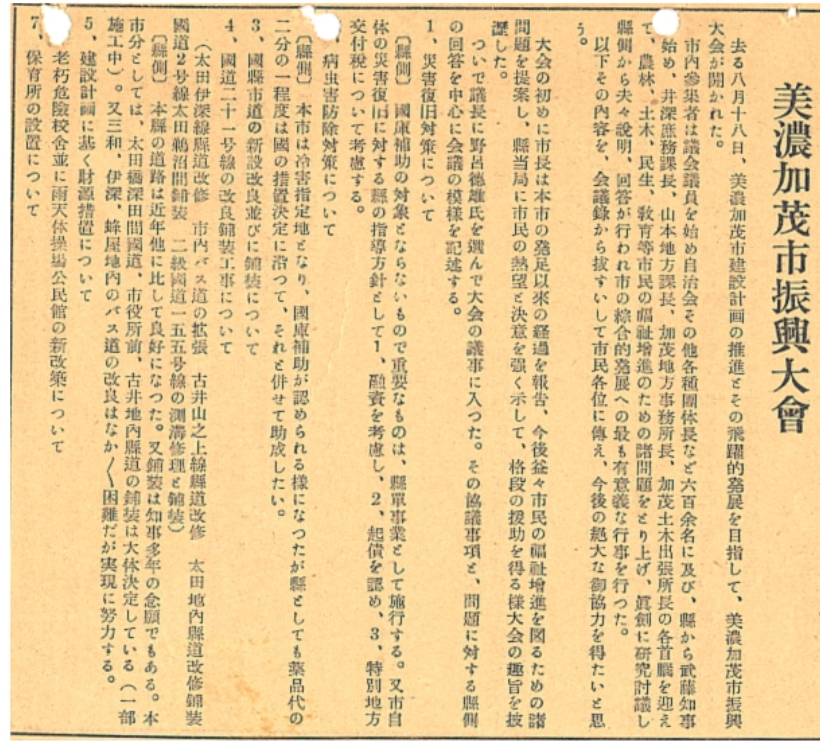 美濃加茂市振興大會
去る八月十八日、美濃加茂市建設計画の推進とその飛躍的発展を目指して、美濃加茂市振興
大会が開かれた。
市内参集者は議会議員を始め自治会その他各種團体長など六百余名に及び、縣から武藤知事
始め、井深庶務課長、山本地方課長、加茂地方事務所長、加茂土木出張所長の各首脳を迎え
て、農林、土木、民生、教育等市民の福祉増進のための諸問題をとり上げ、眞剣に研究討議し
縣側から夫々説明、回答が行われ市の綜合的発展への最も有意義な行事を行つた。
以下その内容を、会議錄から抜すいして市民各位に傳え、今後の絕大な御協力を得たいと思
う。
大会の初めに市長は本市の発足以来の経過を報告、今後益々市民の福祉増進を図るための諸
問題を提案し、縣当局に市民の熱望と決意を強く示して、格段の援助を得る様大会の趣旨を披
瀝した。
ついで議長に野呂德雄氏を選んで大会の議事に入つた。その協議事項と、問題に対する縣側
の回答を中心に会議の模様を記述する。
1、災害復旧対策について
〔縣側〕　國庫補助の対象とならないもので重要なものは、縣單事業として施行する。又市自
体の災害復旧に対する縣の指導方針として1、融資を考慮し、2、起債を認め、3、特別地方
交付税について考慮する。
、病虫害防除対策について
〔縣側〕　本市は冷害指定地となり、國庫補助が認められる様になつたが縣としても薬品代の
二分の一程度は國の措置決定に沿つて、それと併せて助成したい。
3、國縣市道の新設改良並びに舗装について
4、國道二十一号線の改良舗装工事について
（太田伊深線縣道改修　市内バス道の拡張　古井山之上線縣道改修　太田地內縣道改修舗装
國道2号線太田鵜沼間舗装　二級國道一五五号線の測溝修理と舗装）
〔縣側〕　本縣の道路は近年他に比して良好になつた。又舗装は知事多年の念願でもある。本
市分としては、太田橋深田間國道、市役所前、古井地內縣道の舗装は大体決定している（一部
施工中）。又三和、伊深、蜂屋地內のバス道の改良はなか〱困難だが実現に努力する。
5、建設計画に基く財源措置について
、老朽危險校舎並に雨天体操場公民館の新改築について
7、保育所の設置について